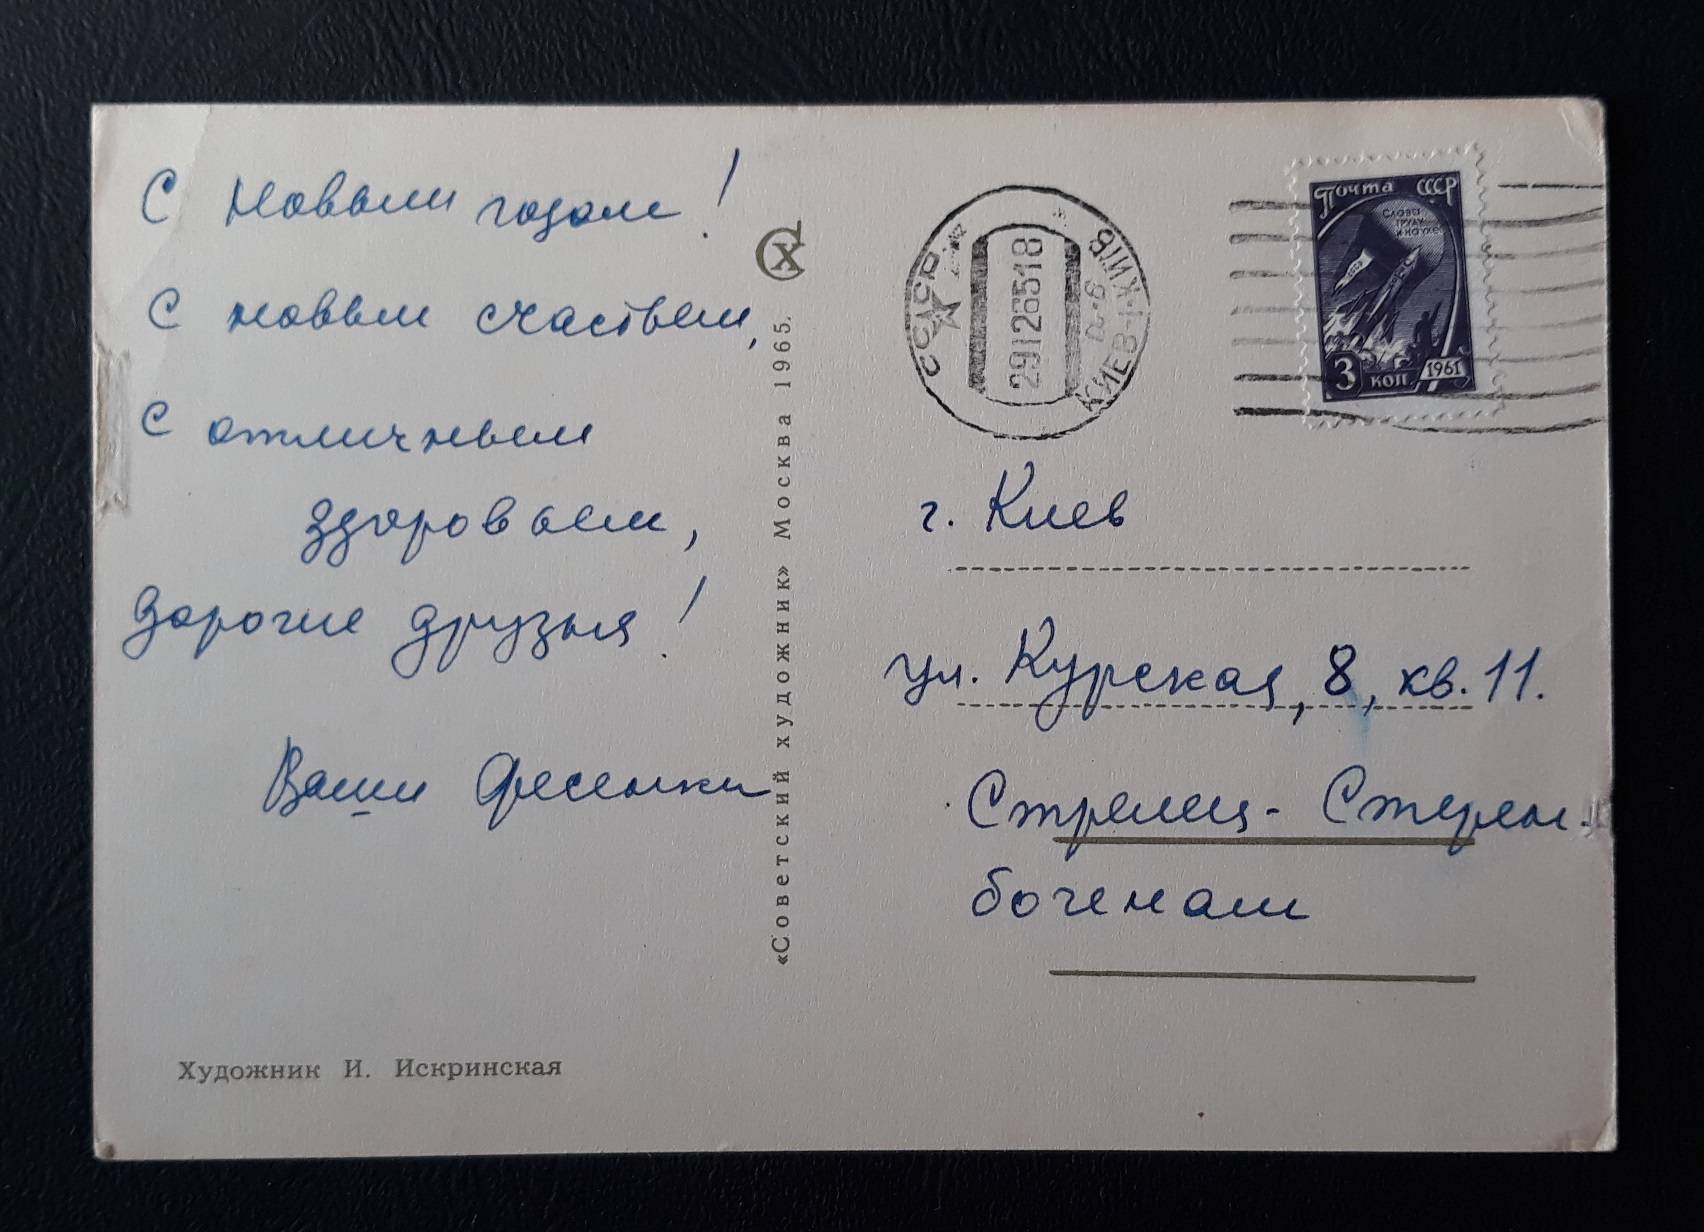 С Новым годом!
С новым счастьем,
С отличным
здоровьем,
дорогие друзья!
Ваши Фесенки
Художник И. Искринская
«Советский художник» Москва 1965.
СХ
СССР
29126518
КИЕВ-1-КИЇВ
Почта СССР
СЛАВА
ТРУДУ
И НАУКЕ
СССР
3 КОП 1961
г. Киев
ул. Курская, 8, кв. 11.
Стрелец-Стерен-
богенам